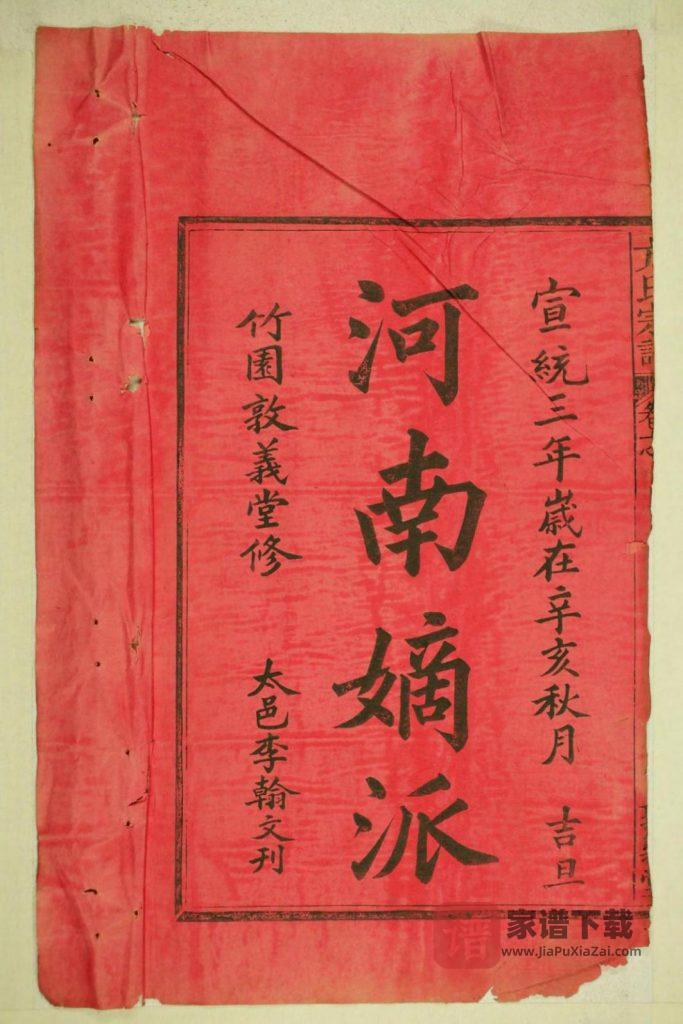 宣統三年歲在辛亥秋月 吉旦
河南嫡派
竹園敦義堂修 太邑李翰文刊
氏宗譜 卷
家谱下载
www.JiaPuXiaZai.com
谱